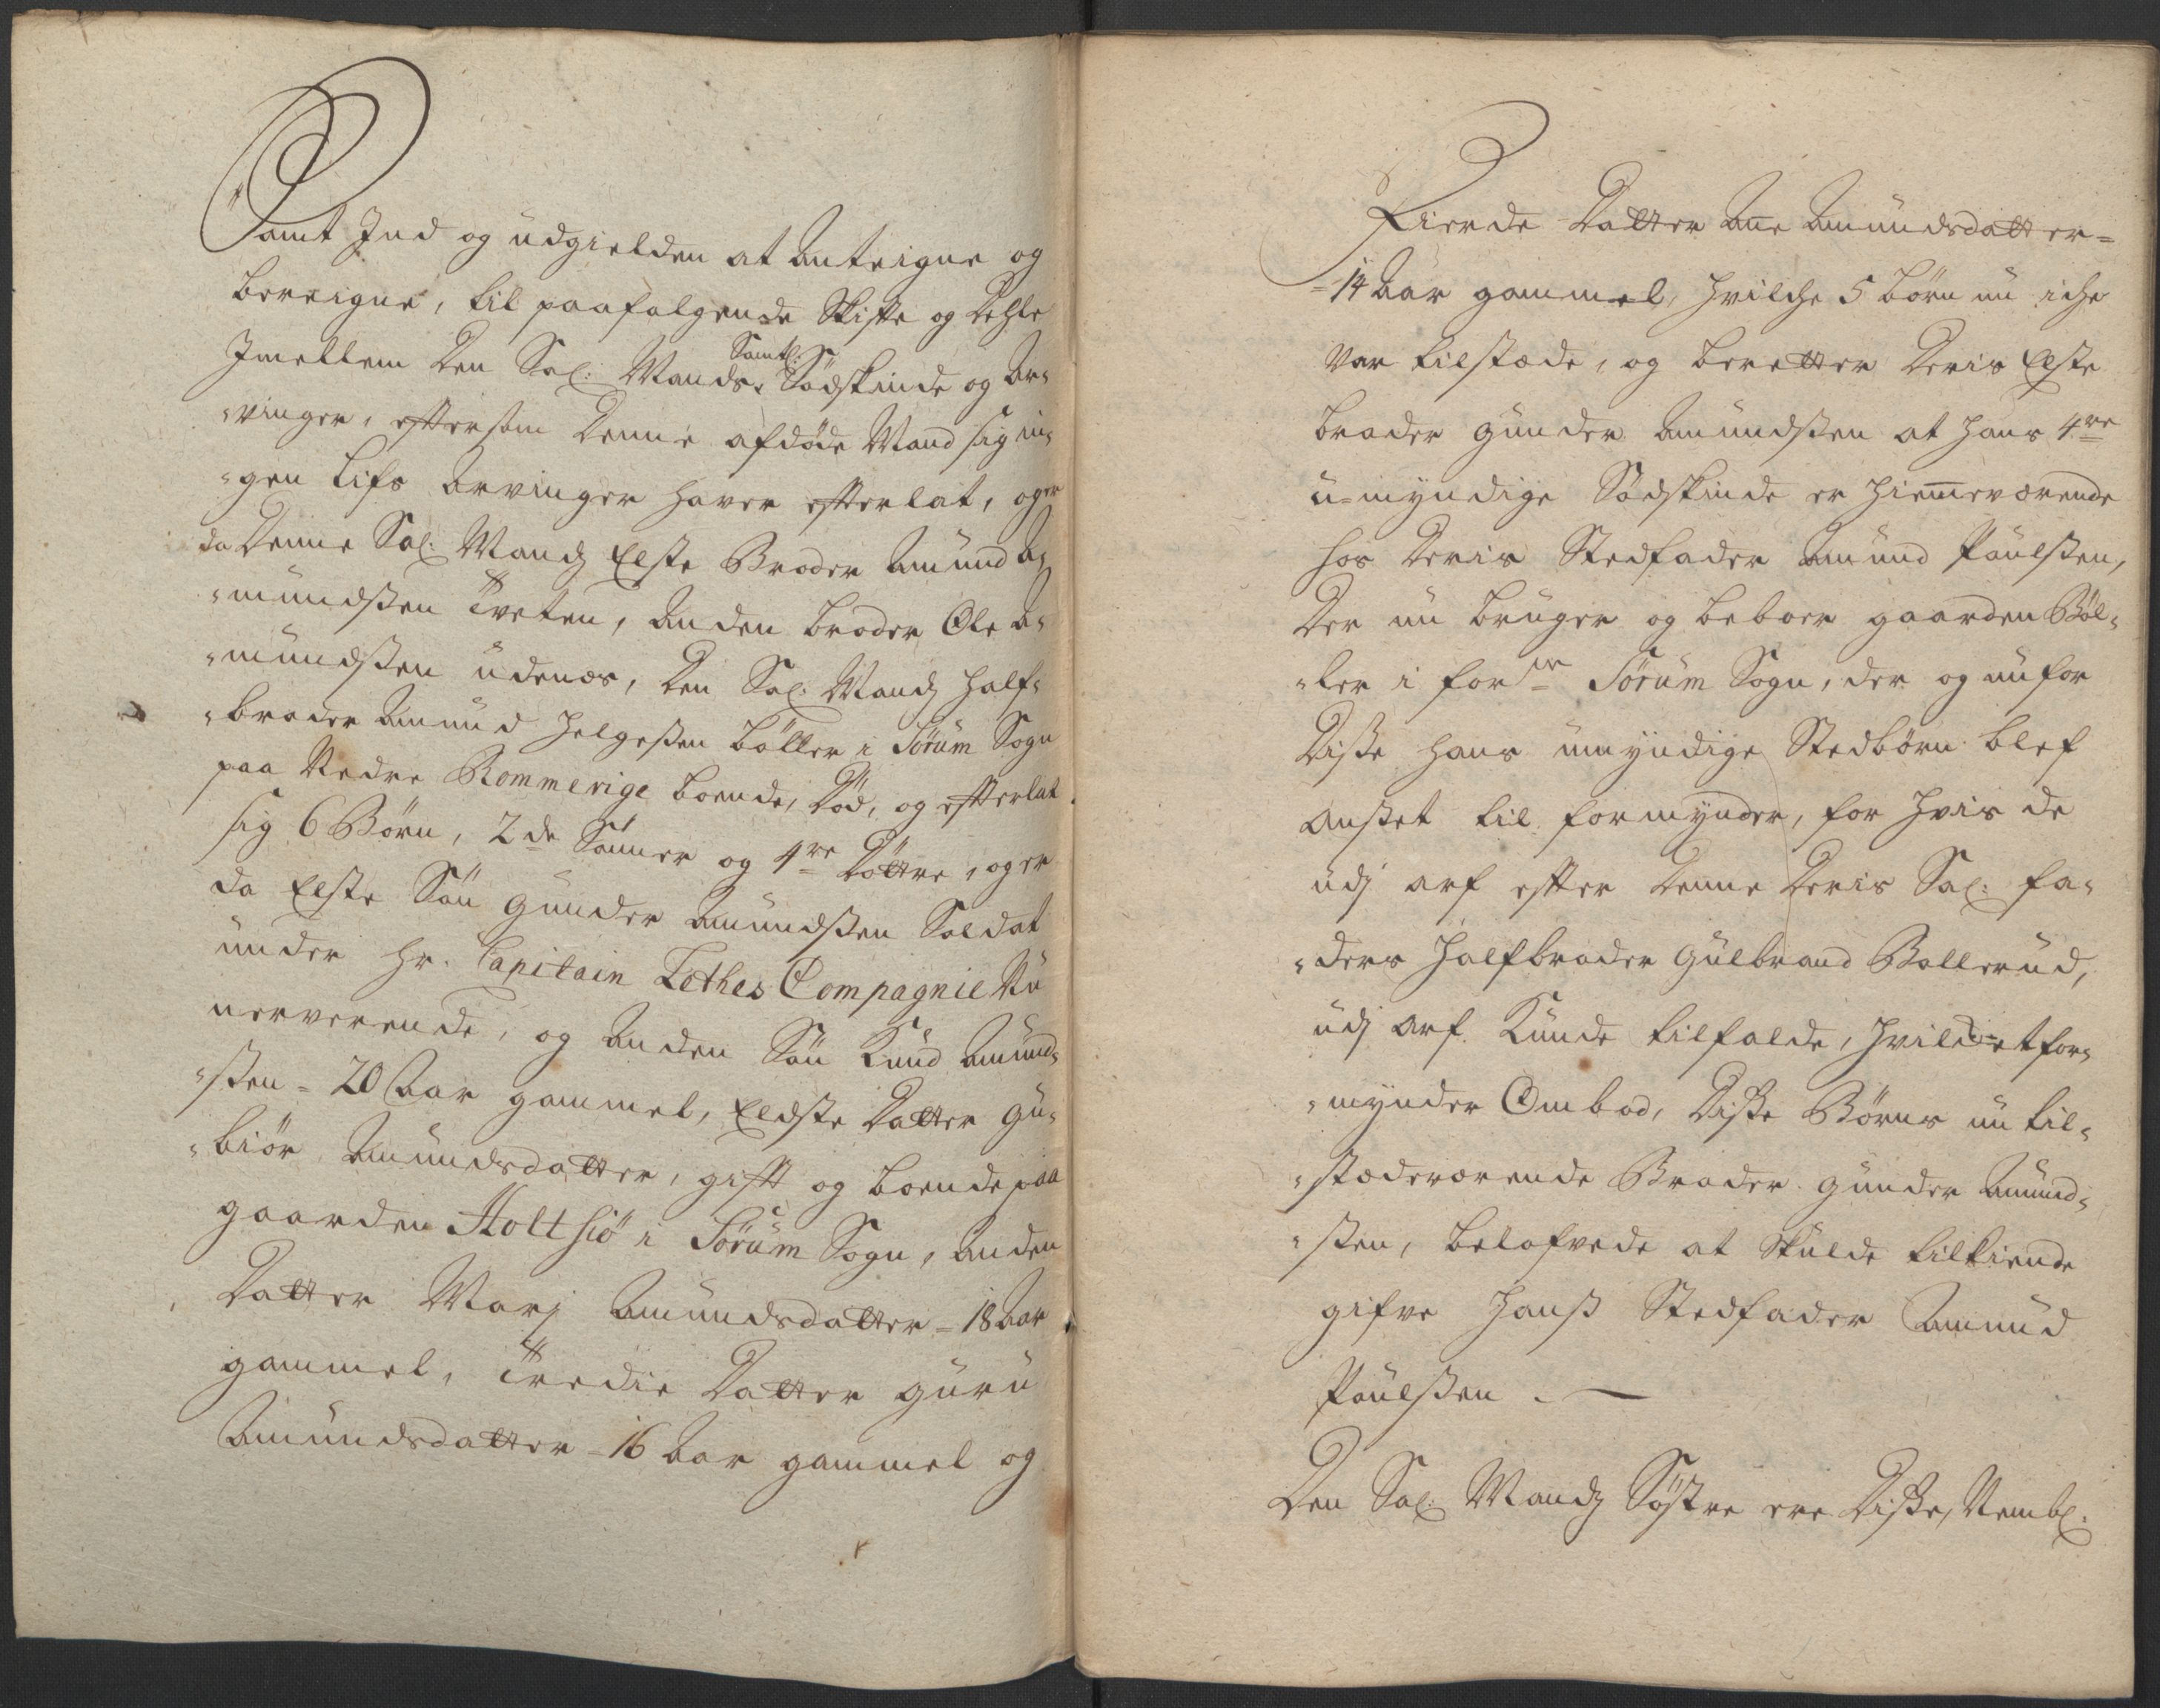 Samt Ind og udgielden at Anteigne og
beregne, til paafølgende Skifte og Dehle
Imellem Den Sal: Mands Samtl: Sødskinde og Ar-
-vinger, eftersom Denne afdøde Mand sig in-
-gen Lifs Arvinger haver efterlat, og er
da Denne Sal: Mands Elste Broder Amund A-
-mundssen Tveten, Anden broder Ole A-
-mundssen udenæs, Den Sal: Mands Half-
-broder Amund Helgessen bøller i Sørum Sogn
paa Nedre Rommerige boende, Død, og efterlat
sig 6 Børn, 2de Sønner og 4re Døttre, og er
da Elste Søn Gunder Amundssen Soldat
under Hr. Capitain Lethes Compagnie Nu
nerverende, og Anden Søn Knud Amund-
-ssen = 20 Aar gammel, Eldste Datter Gu-
-biør Amundsdatter, gift og boende paa
gaarden Holtsiø i Sørum Sogn, Anden
Datter Marj Amundsdatter = 18 Aar
gammel, Tredie Datter Guru
Amundsdatter = 16 Aar gammel og
Fierde Datter Ane Amundsdatter =
= 14 Aar gammel, hvilche 5 børn nu iche
var tilstæde, og beretter Deris Elste
broder Gunder Amundssen at hans 4re
u=myndige Sødskinde er hiemeværende
hos Deris Stedfader Amund Poulssen,
Der nu bruger og beboer gaarden Bøl-
-ler i for.ne Sørum Sogn, der og nu for
Disse hans umyndige Stedbørn blef
ansset til formynder, for hvis de
udj arf efter Denne Deris Sal: fa-
-ders Halfbroder Gulbrand Bollerud,
udj arf Kunde tilfalde, hvilchet for-
-mynder Ombod, Disse Børns nu til-
-stædeværende Broder Gunder Amund-
-ssen, belofvede at skulde tilkiende
gifve hanss Stedfader Amund
Poulssen.
Den Sal: Mands Søstre ere Disse, Nembl: